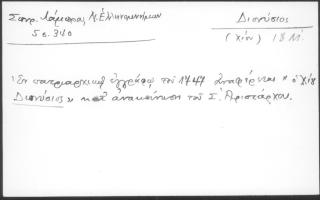 Σπυρ. Λάμπρος, Ν. Ἑλληνομνήμων
5 σ. 340
Διονύσιος
(Χίου) 18 Μ.
Ἐν πατριαρχικῷ ἐγγράφῳ τοῦ 1747 ἀναφέρεται "ὁ Χίου
Διονύσιος" κατ' ἀνακοίνωση τοῦ Σ. Ἀριστάρχου.